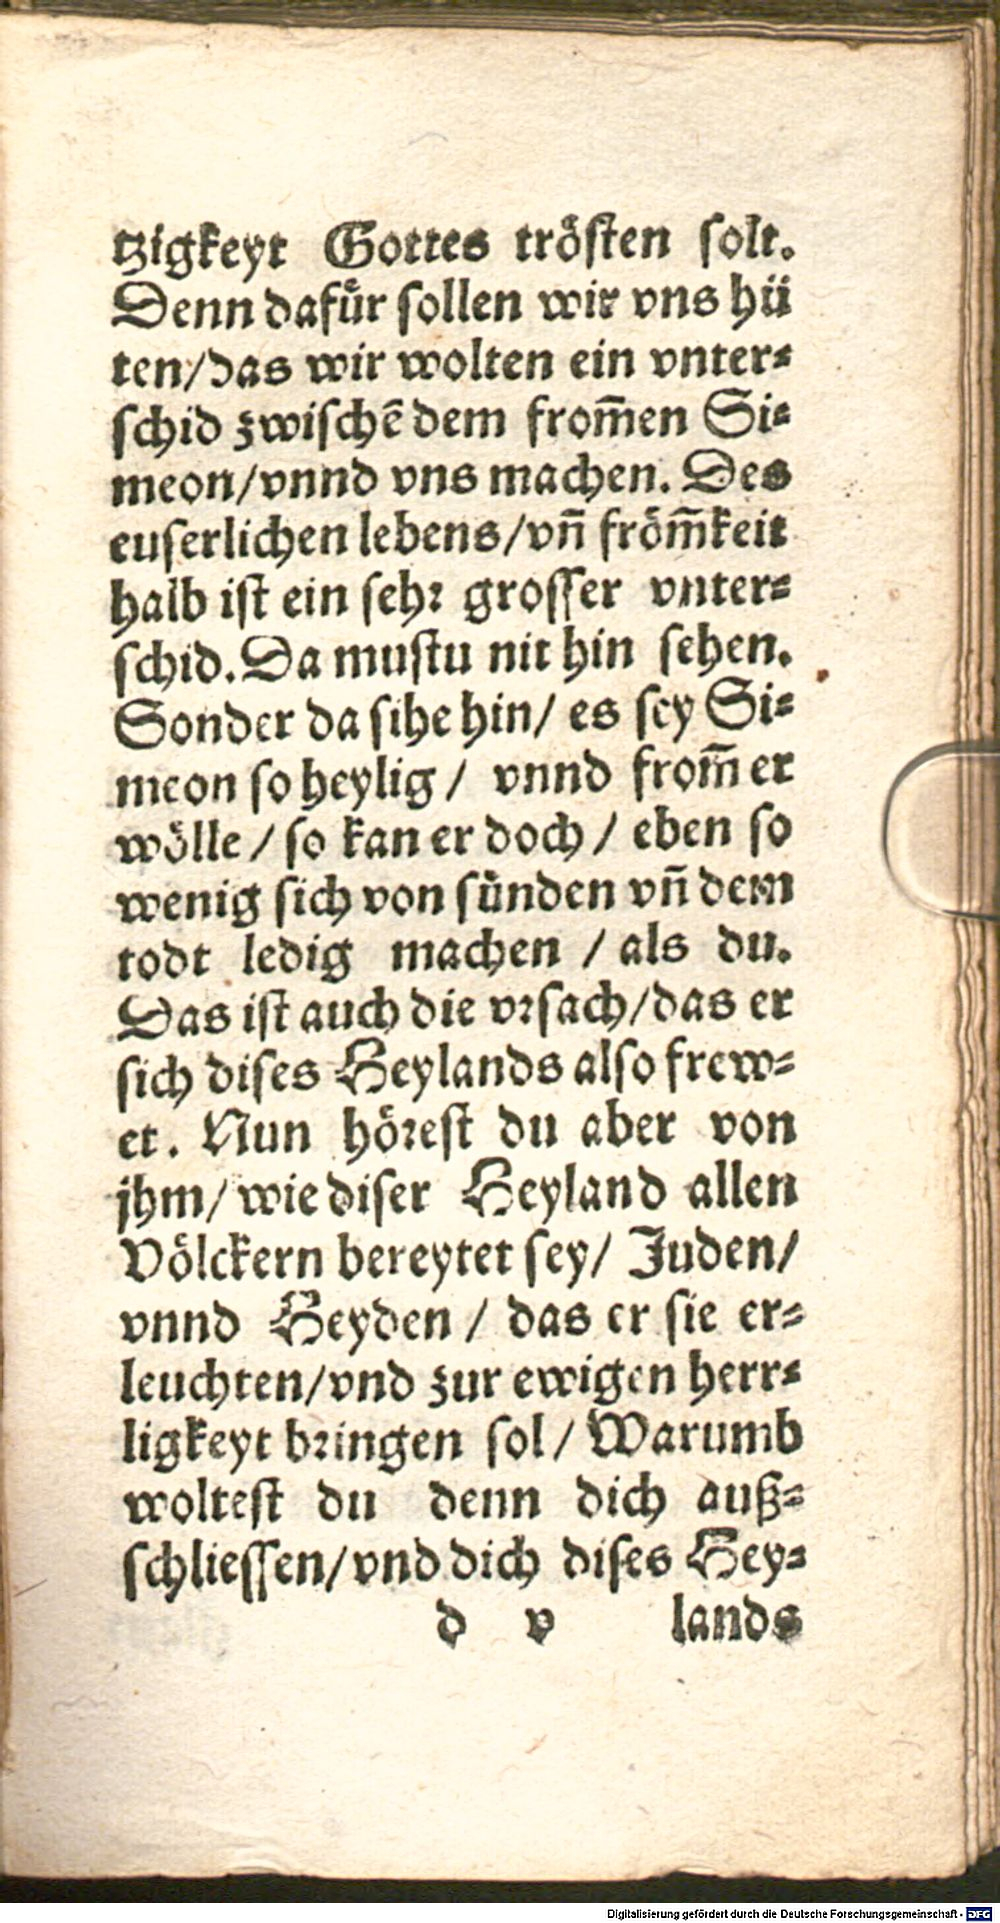 tzigkeyt Gottes trösten solt.
Denn dafür sollen wir vns hü
ten/das wir wolten ein vnter-
schid zwischē dem from̄en Si-
meon/vnnd vns machen. Des
euserlichen lebens/vn̄ fröm̄keit
halb ist ein sehr grosser vnter-
schid. Da mustu nit hin sehen.
Sonder da sihe hin/ es sey Si-
meon so heylig / vnnd from̄ er
wölle / so kan er doch / eben so
wenig sich von sünden vn̄ dem
todt ledig machen / als du.
Das ist auch die vrsach/das er
sich dises Heylands also frew-
et. Nun hörest du aber von
jhm/ wie diser Heyland allen
Völckern bereytet sey/ Juden/
vnnd Heyden / das er sie er-
leuchten/vnd zur ewigen herr-
ligkeyt bringen sol / Warumb
woltest du denn dich auß-
schliessen/vnd dich dises Hey-
d v lands
Digitalisierung gefördert durch die Deutsche Forschungsgemeinschaft - DFG